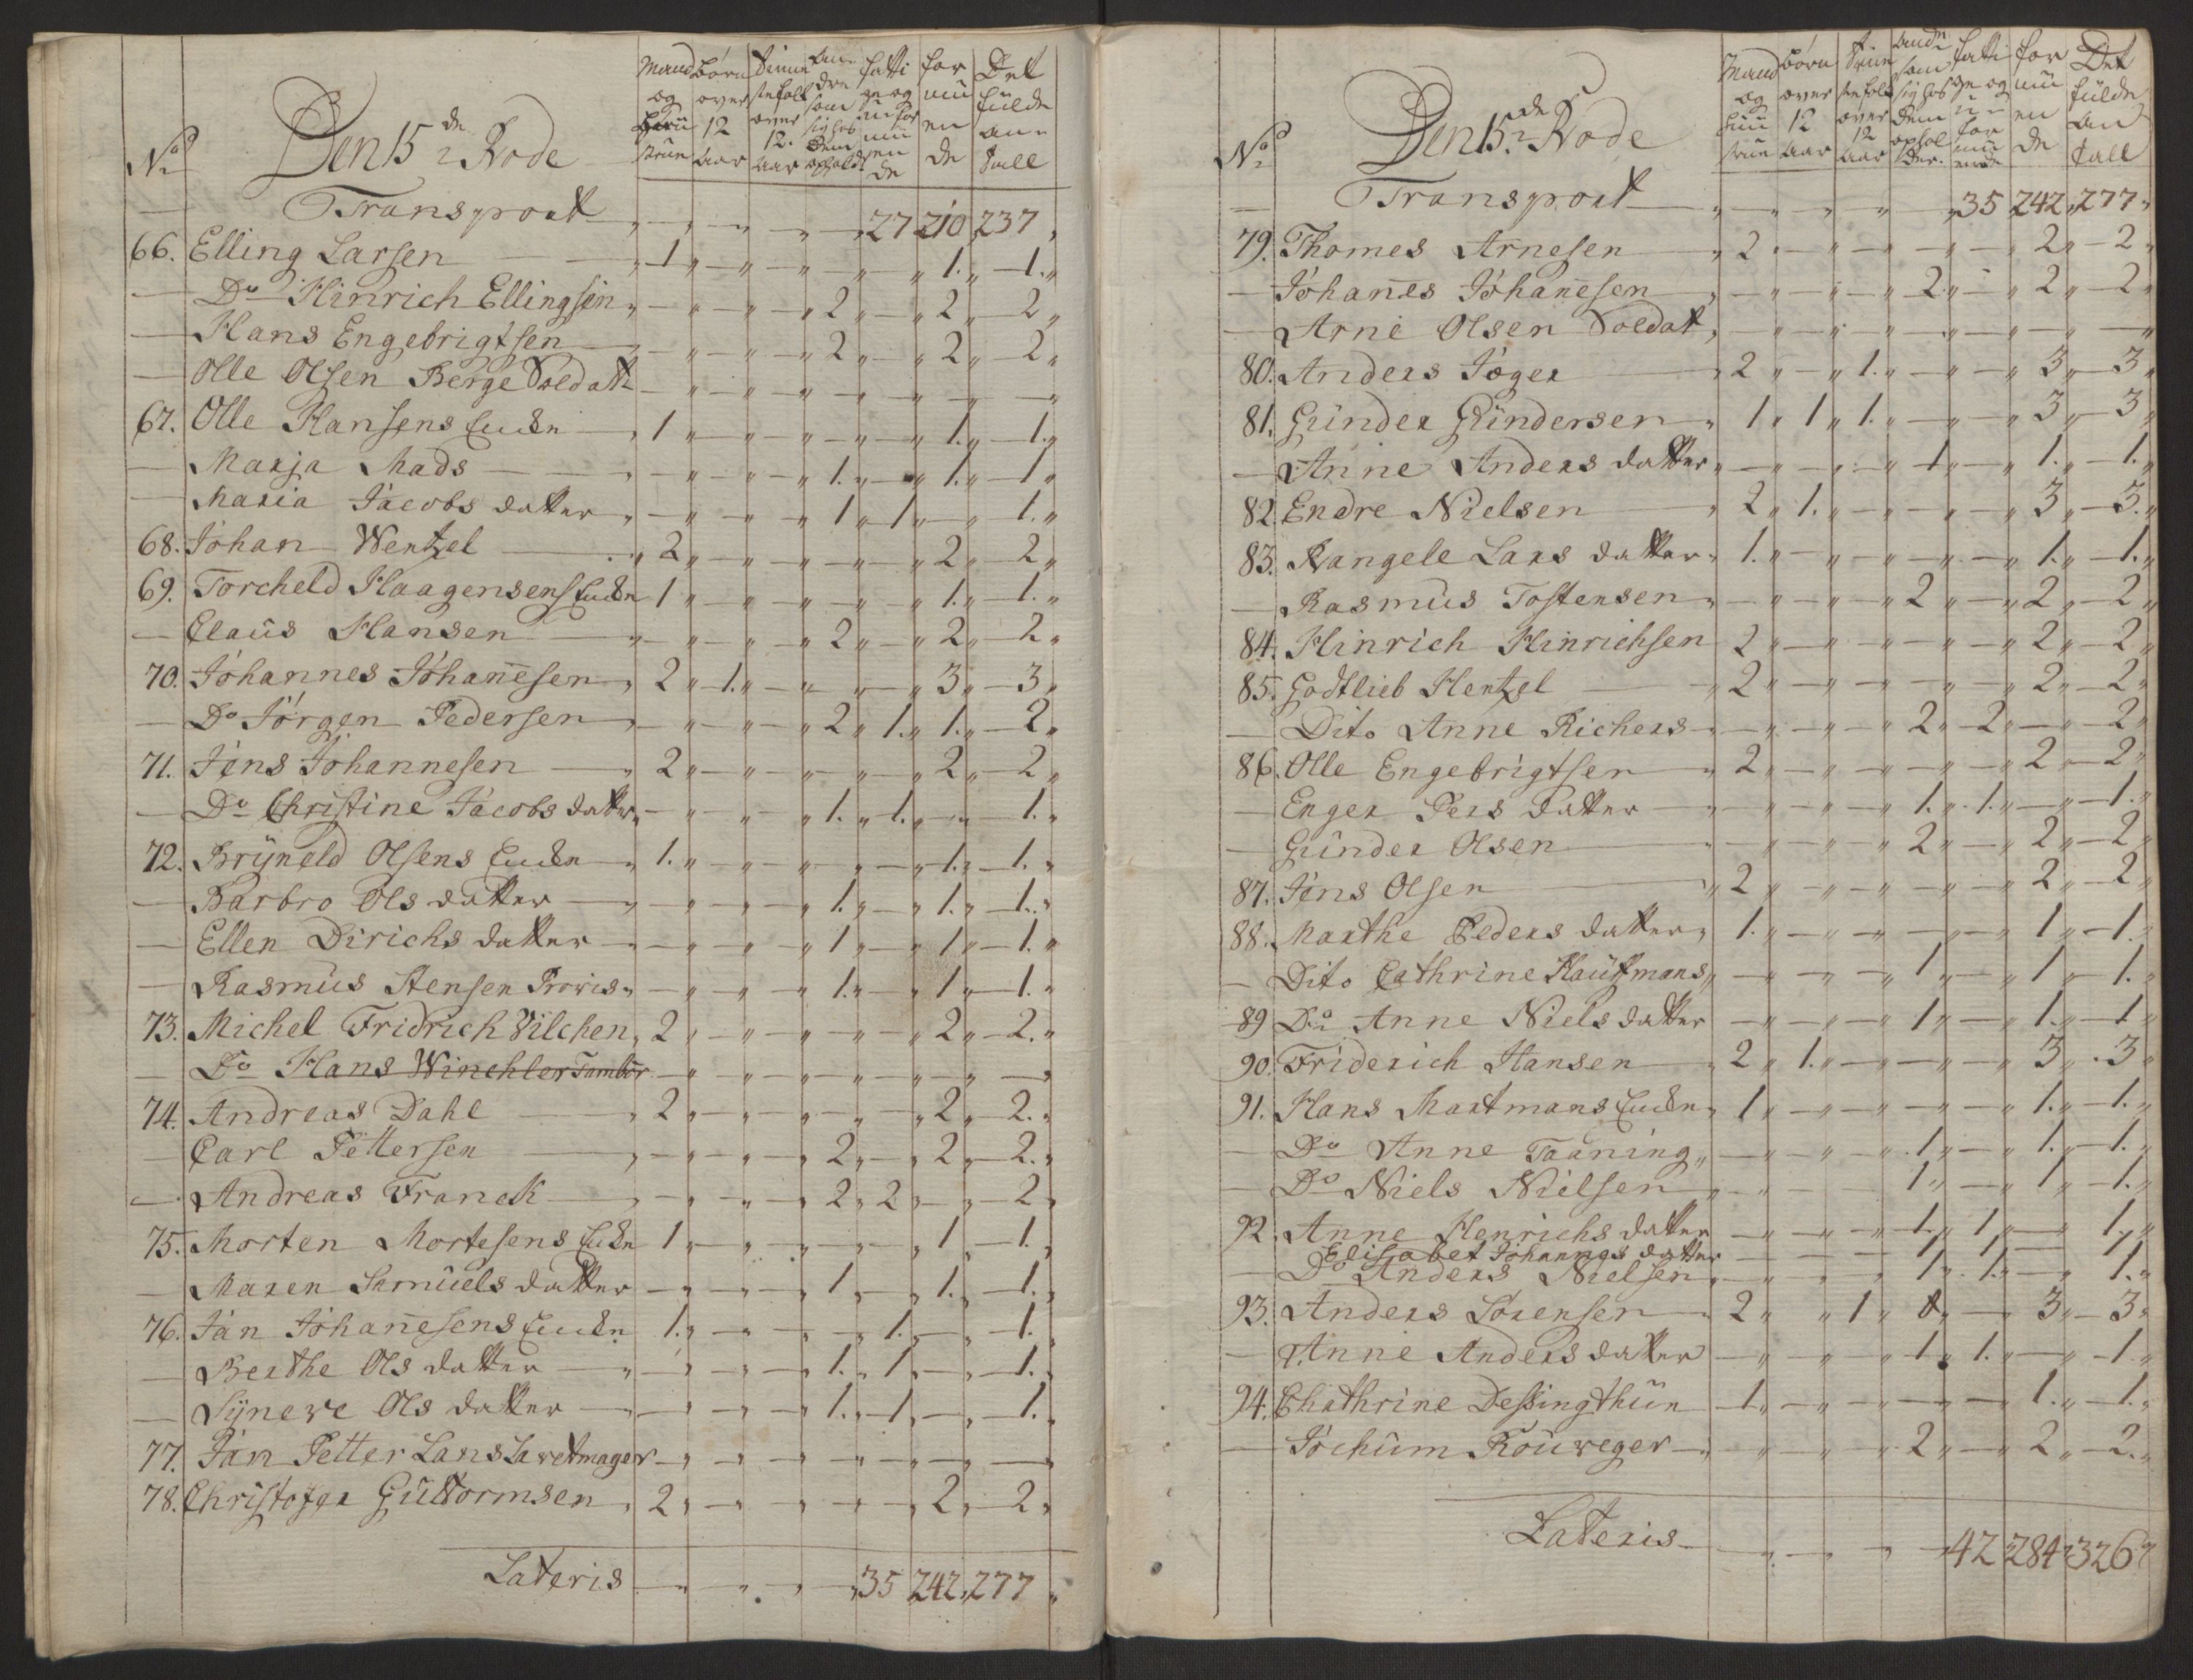 No Den 15de Rode
Mand og Hustrue
Børn over 12 Aar
Tienestefolk over 12. Aar
Andre som sig hos dem opholde
fattige og uformuende
formuende
Det fulde Antall
Transport 27 210 237
66. Elling Larsen 1 1. 1.
Do Hinrich Ellingsen 2 2 2
Hans Engebrigtsen 2 2 2
Olle Olsen Berge Soldatt
67. Olle Hansens Encke 1 1. 1.
Marja Mads 1. 1. 1
Maria Jacobs datter 1 1 1.
68. Johan Wentzel 2 2 2
69. Torcheld Haagensens Encke 1 1. 1.
Claus Hansen 2 2 2
70. Johannes Johannesen 2 1. 3 3
Do Jørgen Pedersen 2 1. 1. 2
71. Jens Johannesen 2 2 2
Do Christine Jacobs datter 1. 1. 1.
72. Bryneld Olsens Encke 1. 1. 1.
Barbro Ols datter 1. 1. 1.
Ellen Dirichs datter 1 1 1.
Rasmus Stensen Provis 1. 1 1.
73. Michel Fridrich Vilchen 2 2 2.
Do Hans Winchler Tambur
74. Andreas Dahl 2 2 2.
Carl Pettersen 2 2 2.
Andreas Franck 2 2 2
75. Morten Mortesens Encke 1 1 1.
Maren Samuels datter 1 1. 1.
76. Jan Johannesens Encke 1. 1. 1.
Berthe Ols datter 1. 1 1.
Syneve Ols datter 1. 1 1.
77. Jan Petter Lans Lavetmager
78. Christofer Guttormsen 2 2 2
Lateris 35 242 277
No Den 15de Rode
Mand og Hustrue
Børn over 12 Aar
Tienestefolk over 12 Aar
Andre som sig hos dem opholder.
fattige og uformuende
formuende
Det fulde Antall
Transport 35 242 277
79. Thomes Arnesen 2 2 2
Johannes Johannesen 2 2 2
Arne Olsen Soldat
80. Anders Jøger 2 1. 3 3
81. Gunder Gundersen 1 1 1. 3 3
Anne Anders datter 1 1. 1.
82. Endre Nielsen 2 1. 3 3.
83. Rangele Lars datter 1. 1. 1.
Rasmus Tostensen 2 2 2
84. Hinrich Hinrichsen 2 2 2
85. Godtlieb Hentzel 2 2 2
Dito Anne Richers 2 2 2
86. Olle Engebrigtsen 2 2 2
Enger Pers datter 1. 1. 1.
Gunder Olsen 2 2 2
87. Jens Olsen 2 2 2
88. Marthe Peders datter 1. 1 1.
Dito Cathrine Hauffmans 1 1 1.
89 Do Anne Niels datter 1 1. 1
90. Friderich Hansen 2 1. 3 3
91. Hans Martmans Encke 1 1. 1.
Do Anne Taaning 1. 1. 1.
Do Niels Nielsen 1 1 1.
92. Anne Henrichs datter 1. 1 1.
Elisabet Johannes datter 1 1 1
Do Anders Nielsen 1. 1. 1.
93. Anders Sørensen 2 1 3 3
Anne Anders datter 1 1. 1
94. Chathrine Dessingthun 1 1. 1.
Jochum Rouweger 2 2 2.
Lateris 42 284 326